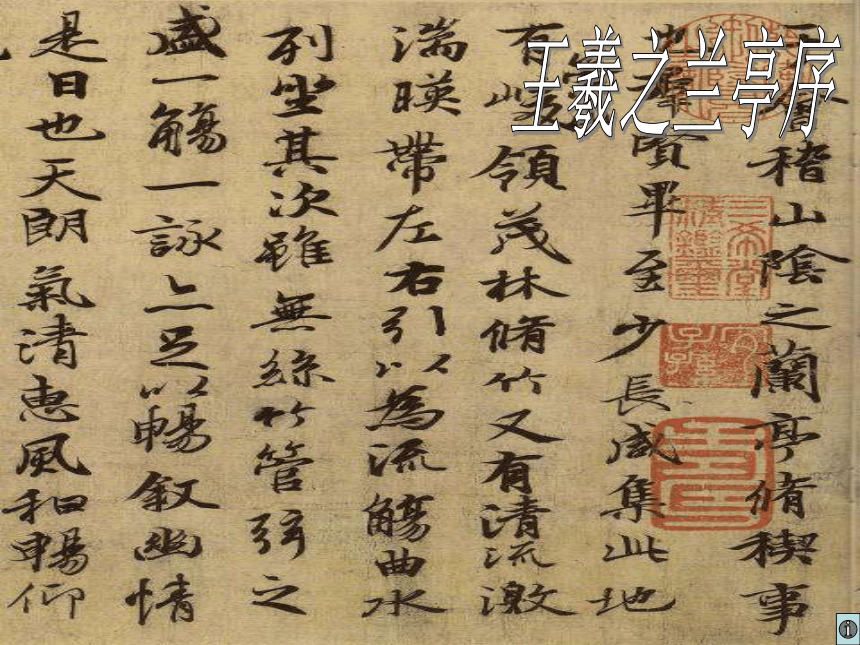 王羲之兰亭序
于會稽山陰之蘭亭脩稧事
也羣賢畢至少長咸集此地
有崇山峻領茂林脩竹又有清流激
湍暎帶左右引以為流觴曲水
列坐其次雖無絲竹管弦之
盛一觴一詠亦足以暢敘幽情
是日也天朗氣清惠風和暢仰
三希堂精鑑璽
宜子孫